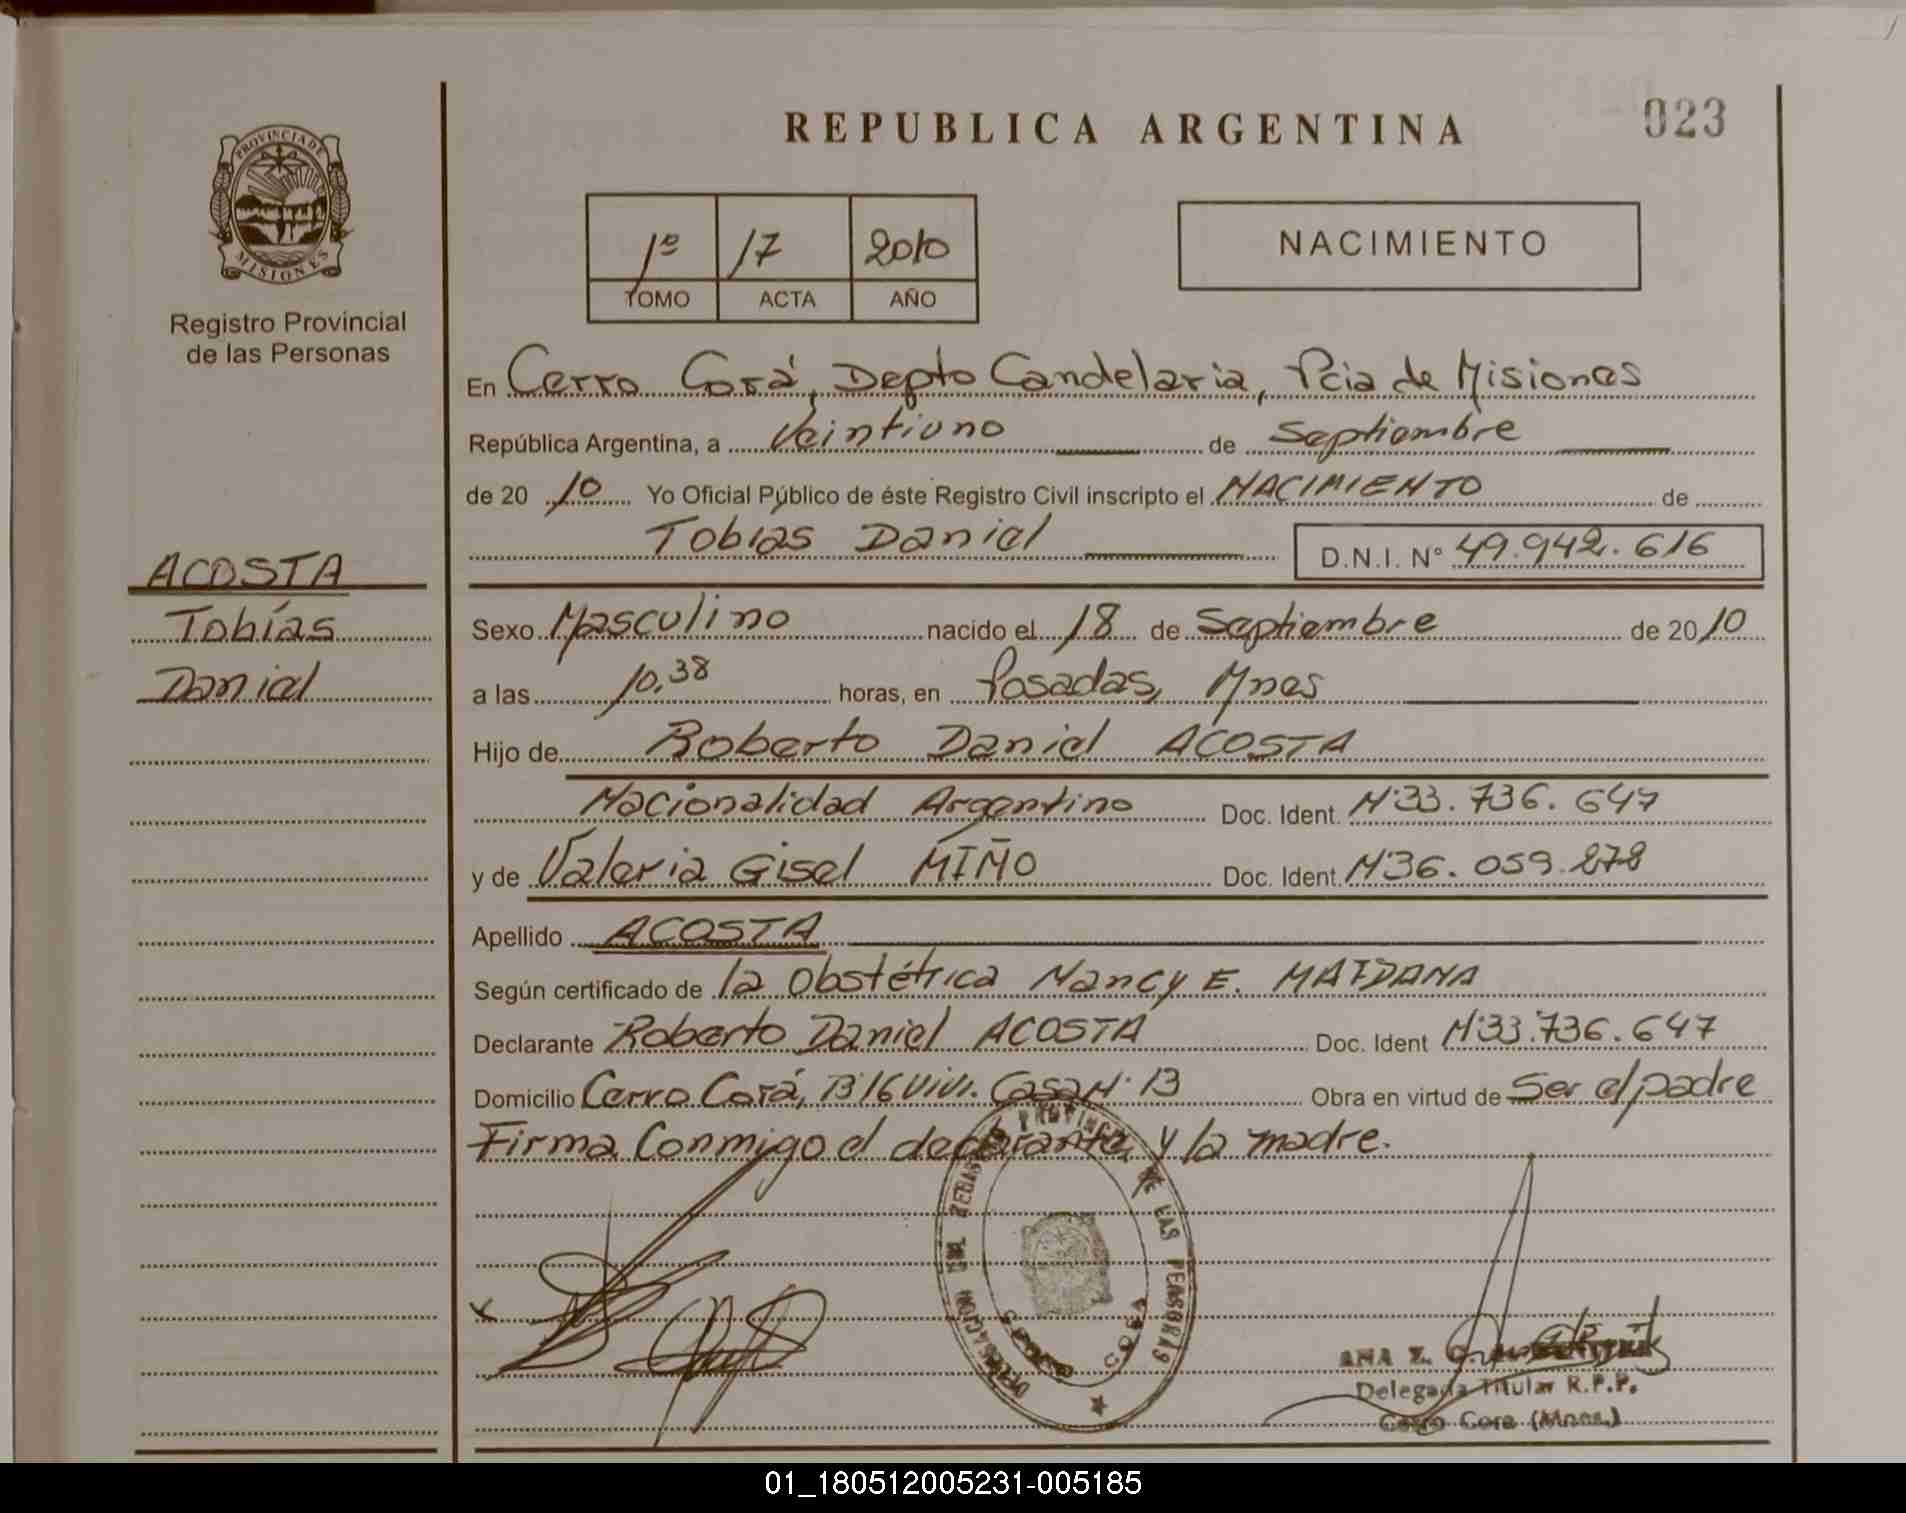 REPUBLICA ARGENTINA
023
PROVINCIA DE
MISIONES
Registro Provincial
de las Personas
1º 17 2010
TOMO ACTA AÑO
NACIMIENTO
En Cerro Corá, Depto Candelaria, Pcia de Misiones
República Argentina, a Veintiuno de Septiembre
de 20 10 Yo Oficial Público de éste Registro Civil inscripto el NACIMIENTO de
Tobias Daniel D.N.I. N° 49.942.616
ACOSTA
Tobías
Daniel
Sexo Masculino nacido el 18 de Septiembre de 20 10
a las 10,38 horas, en Posadas, Mnes
Hijo de Roberto Daniel ACOSTA
Nacionalidad Argentino Doc. Ident. N°33.736.647
y de Valeria Gisel MIÑO Doc. Ident. N°36.059.278
Apellido ACOSTA
Según certificado de la Obstétrica Nancy E. MAIDANA
Declarante Roberto Daniel ACOSTA Doc. Ident N°33.736.647
Domicilio Cerro Corá, B° 16 Viv. Casa N° 13 Obra en virtud de Ser el padre
Firma Conmigo el declarante y la madre.
PROVINCIAL DE LAS PERSONAS
CERRO CORA
ANA
Delegada Titular R.P.P.
Cerro Cora (Mnes.)
01_180512005231-005185